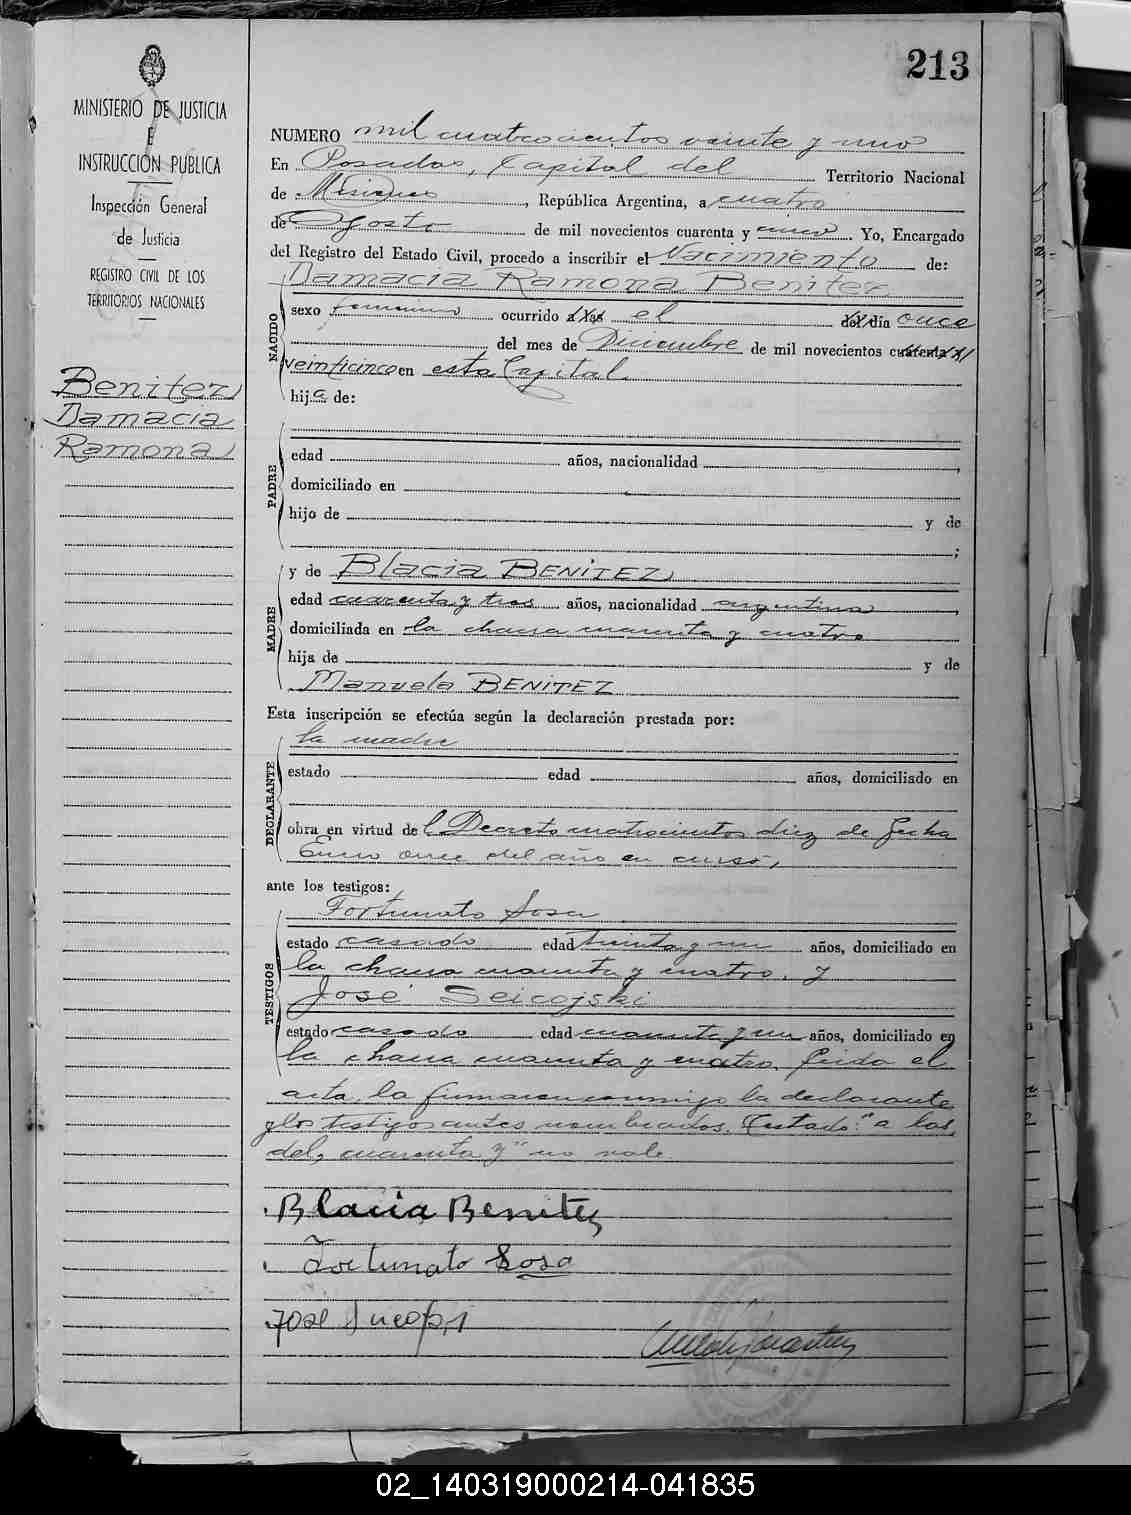 213
MINISTERIO DE JUSTICIA
E
INSTRUCCIÓN PUBLICA
Inspección General
de Justicia
REGISTRO CIVIL DE LOS
TERRITORIOS NACIONALES
Benitez
Damacia
Ramona
NUMERO mil cuatrocientos veinte y uno
En Posadas, Capital del Territorio Nacional
de Misiones, República Argentina, a cuatro
de Agosto de mil novecientos cuarenta y cinco. Yo, Encargado
del Registro del Estado Civil, procedo a inscribir el Nacimiento de:
Damacia Ramona Benitez
NACIDO
sexo femenino ocurrido a las el del día once
del mes de Diciembre de mil novecientos cuarenta y
veinticinco en esta Capital
hija de:
PADRE
edad años, nacionalidad ,
domiciliado en
hijo de y de
;
MADRE
y de Blacia BENITEZ
edad cuarenta y tres años, nacionalidad argentina,
domiciliada en la chacra cuarenta y cuatro
hija de y de
Manuela BENITEZ
Esta inscripción se efectúa según la declaración prestada por:
DECLARANTE
la madre
estado edad años, domiciliado en
obra en virtud del Decreto cuatrocientos diez de fecha
Enero once del año en curso,
ante los testigos:
TESTIGOS
Fortunato Sosa
estado casado edad treinta y un años, domiciliado en
la chacra cuarenta y cuatro. y
José Seicojski
estado casado edad cuarenta y un años, domiciliado en
la chacra cuarenta y cuatro. Leida el
acta, la firmaron conmigo la declarante
y los testigos antes nombrados. Testado: "a las,
del, cuarenta y" no vale.
Blacia Benitez
Fortunato Sosa
José
02_140319000214-041835